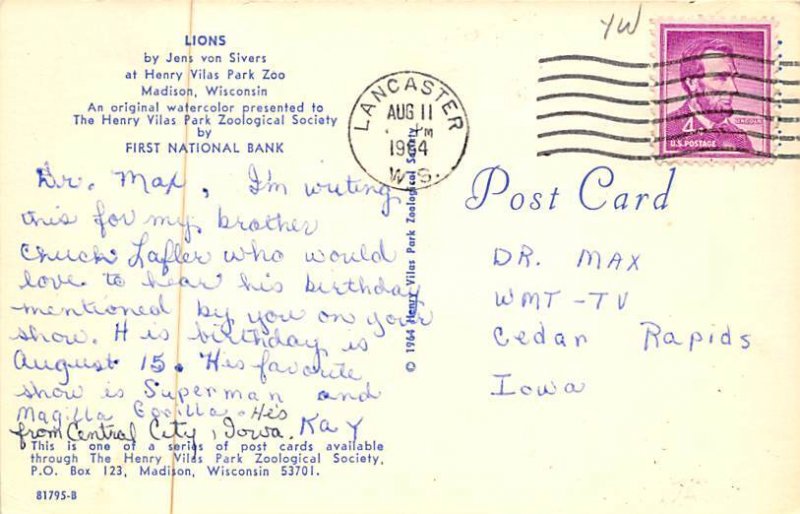 LIONS
by Jens von Sivers
at Henry Vilas Park Zoo
Madison, Wisconsin
An original watercolor presented to
The Henry Vilas Park Zoological Society
by
FIRST NATIONAL BANK
Dr. Max, I'm writing
this for my brother
Chuck Lafler who would
love to hear his birthday
mentioned by you on your
show. H is birthday is
August 15. His favorite
show is Superman and
Magilla Gorilla. He's
from Central City, Iowa. Kay
This is one of a series of post cards available
through The Henry Vilas Park Zoological Society,
P.O. Box 123, Madison, Wisconsin 53701.
81795-B
© 1964 Henry Vilas Park Zoological Society
LANCASTER
AUG 11
PM
1964
WIS.
YW
LINCOLN
4¢
U.S. POSTAGE
Post Card
DR. MAX
WMT-TV
Cedar Rapids
Iowa